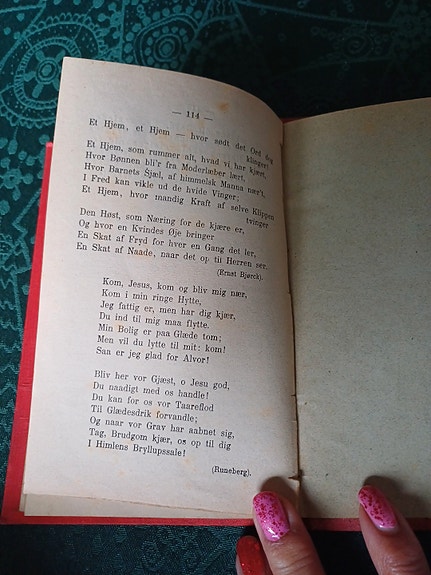 — 114 —
Et Hjem, et Hjem — hvor sødt det Ord dog
klinger!
Et Hjem, som rummer alt, hvad vi har kjært,
Hvor Bønnen bli'r fra Moderlæber lært,
Hvor Barnets Sjæl, af himmelsk Manna nær't,
I Fred kan vikle ud de hvide Vinger;
Et Hjem, hvor mandig Kraft af selve Klippen
tvinger
Den Høst, som Næring for de kjære er,
Og hvor en Kvindes Øje bringer
En Skat af Fryd for hver en Gang det ler,
En Skat af Naade, naar det op til Herren ser.
(Ernst Bjørck).
Kom, Jesus, kom og bliv mig nær,
Kom i min ringe Hytte,
Jeg fattig er, men har dig kjær,
Du ind til mig maa flytte.
Min Bolig er paa Glæde tom;
Men vil du lytte til mit: kom!
Saa er jeg glad for Alvor!
Bliv her vor Gjæst, o Jesu god,
Du naadigt med os handle!
Du kan for os vor Taareflod
Til Glædesdrik forvandle;
Og naar vor Grav har aabnet sig,
Tag, Brudgom kjær, os op til dig
I Himlens Bryllupssale!
(Runeberg).